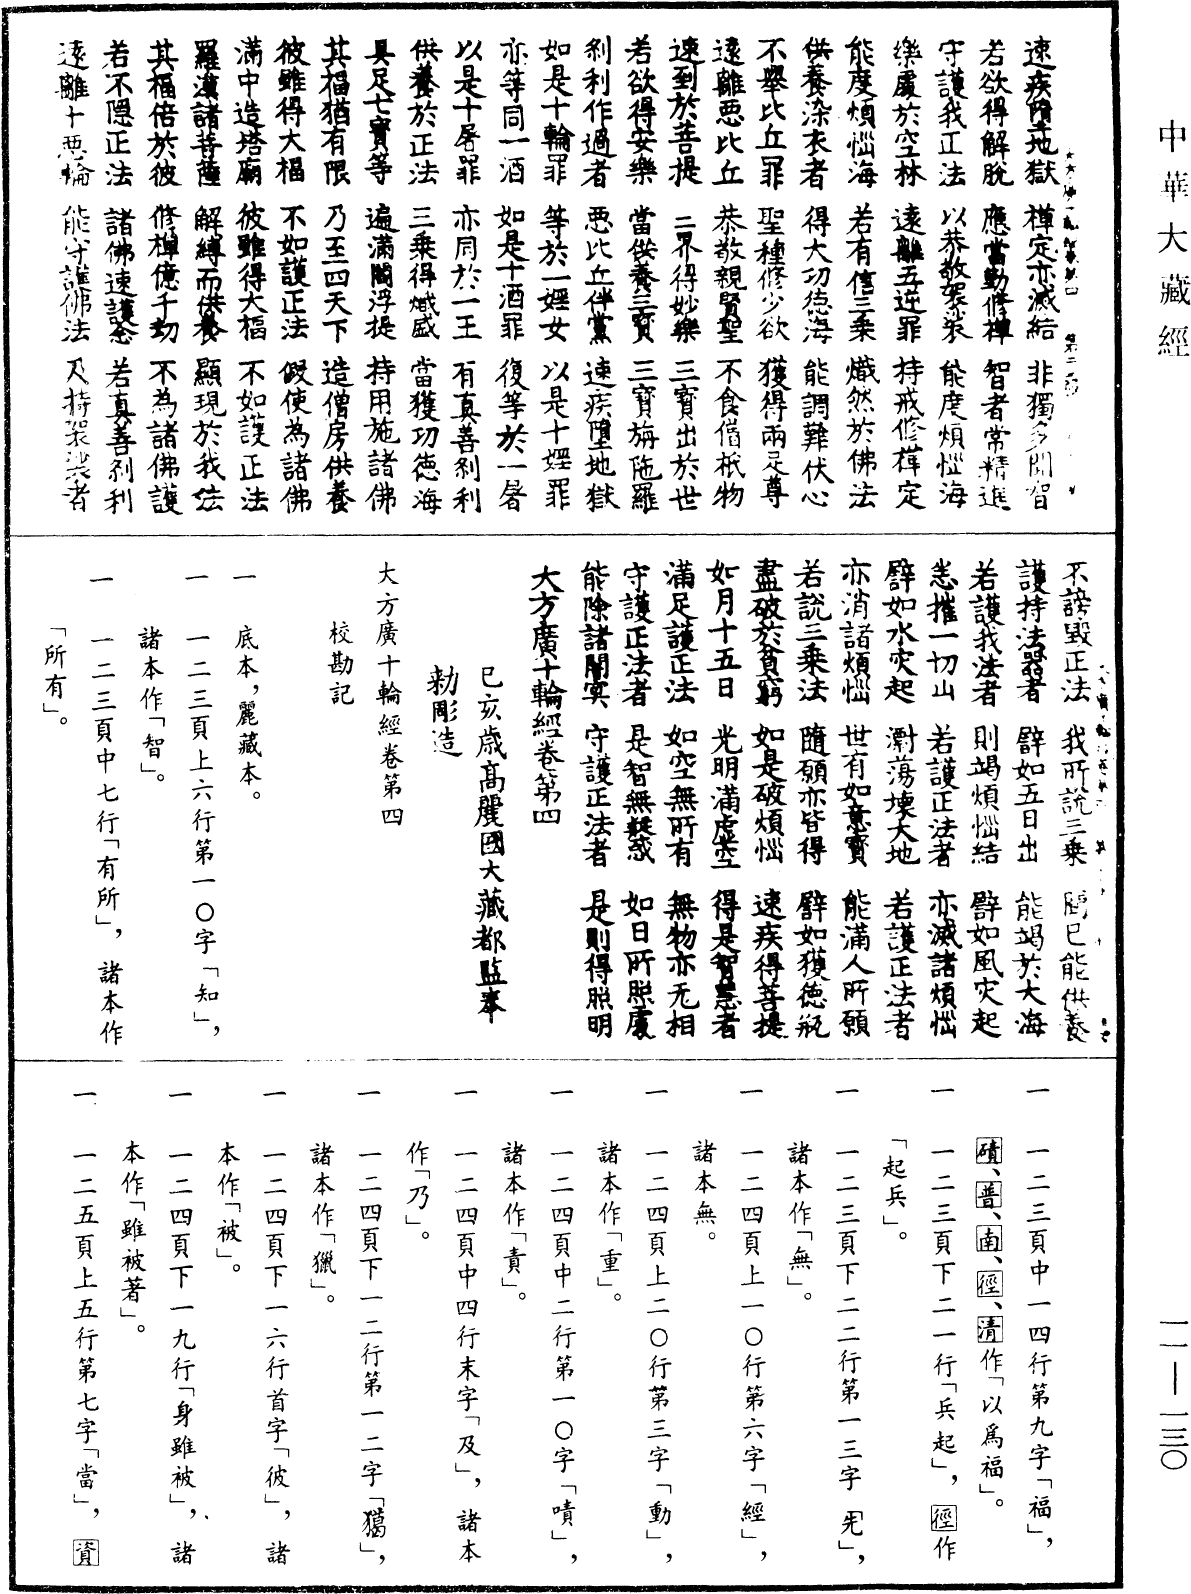 中華大藏經
速疾墮地獄 禪定亦滅結 非獨多聞智
若欲得解脫 應當勤修禪 智者常精進
守護我正法 以恭敬袈裟 能度煩惱海
樂處於空林 遠離五逆罪 持戒修禪定
能度煩惱海 若有信三乘 熾然於佛法
供養染衣者 得大功德海 能調難伏心
不舉比丘罪 聖種修少欲 獲得兩足尊
遠離惡比丘 恭敬親賢聖 不食僧祇物
速到於菩提 三界得妙樂 三寶出於世
若欲得安樂 當供養三寶 三寶旃陁羅
刹利作過者 惡比丘伴黨 速疾墮地獄
如是十輪罪 等於一婬女 以是十婬罪
亦等同一酒 如是十酒罪 復等於一屠
以是十屠罪 亦同於一王 有真善刹利
供養於正法 三乘得熾盛 當獲功德海
具足七寶等 遍滿閻浮提 持用施諸佛
其福猶有限 乃至四天下 造僧房供養
彼雖得大福 不如護正法 假使為諸佛
滿中造塔廟 彼雖得大福 不如護正法
羅漢諸菩薩 解縛而供養 顯現於我法
其福倍於彼 修禪億千劫 不為諸佛護
若不隱正法 諸佛速護念 若真善刹利
遠離十惡輪 能守護佛法 及持袈裟者
不謗毀正法 我所說三乘 聞已能供養
護持法器者 譬如五日出 能竭於大海
若護我法者 則竭煩惱結 譬如風灾起
悉摧一切山 若護正法者 亦滅諸煩惱
譬如水灾起 㵱蕩壞大地 若護正法者
亦消諸煩惱 世有如意寶 能滿人所願
若說三乘法 隨願亦皆得 譬如獲德瓶
盡破於貧窮 如是破煩惱 速疾得菩提
如月十五日 光明滿虛空 得是智慧者
滿足護正法 如空無所有 無物亦无相
守護正法者 是智無疑惑 如日所照處
能除諸闇冥 守護正法者 是則得照明
大方廣十輪經卷第四
己亥歲高麗國大藏都監奉
勅彫造
大方廣十輪經卷第四
校勘記
一 底本，麗藏本。
一 一二三頁上六行第一〇字「知」，
諸本作「智」。
一 一二三頁中七行「有所」，諸本作
「所有」。
一 一二三頁中一四行第九字「福」，
磧、普、南、徑、清作「以爲福」。
一 一二三頁下二一行「兵起」，徑作
「起兵」。
一 一二三頁下二二行第一三字「旡」，
諸本作「無」。
一 一二四頁上一〇行第六字「經」，
諸本無。
一 一二四頁上二〇行第三字「動」，
諸本作「重」。
一 一二四頁中二行第一〇字「嘖」，
諸本作「責」。
一 一二四頁中四行末字「及」，諸本
作「乃」。
一 一二四頁下一二行第一二字「獦」，
諸本作「獵」。
一 一二四頁下一六行首字「彼」，諸
本作「被」。
一 一二四頁下一九行「身雖被」，諸
本作「雖被著」。
一 一二五頁上五行第七字「當」，資
一一—一三〇